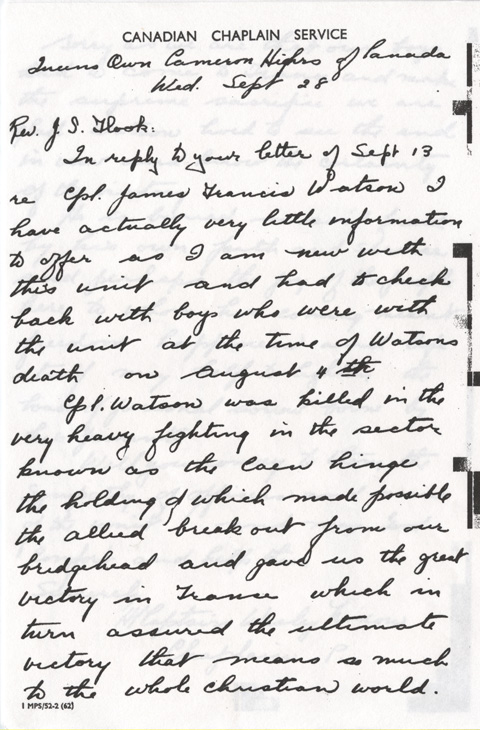 CANADIAN CHAPLAIN SERVICE
Queens Own Cameron Highrs of Canada
Wed. Sept 28
Rev. J. S. Flook:
In reply to your letter of Sept 13
re Cpl. James Francis Watson I
have actually very little information
to offer as I am new with
this unit and had to check
back with boys who were with
the unit at the time of Watsons
death on August 11th.
Cpl. Watson was killed in the
very heavy fighting in the sector
known as the Caen hinge
the holding of which made possible
the allied break out from our
bridgehead and gave us the great
victory in France which in
turn assured the ultimate
victory that means so much
to the whole christian world.
1 MPS/52-2 (62)